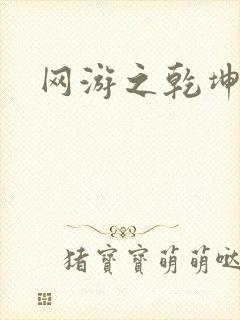 网游之乾坤
猪寳寳萌萌哒